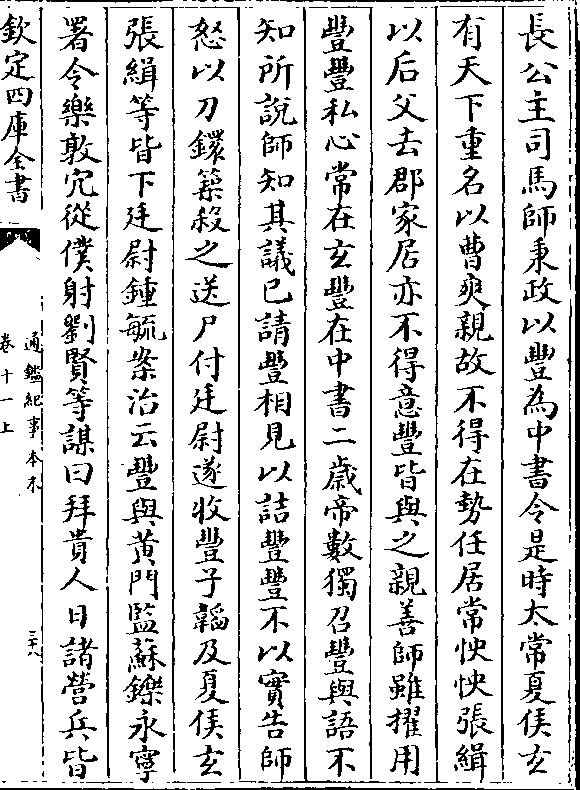 長公主司馬師秉政以豐為中書令是時太常夏侯玄
有天下重名以曹爽親故不得在勢任居常怏怏張緝
以后父去郡家居亦不得意豐皆與之親善師雖擢用
豐豐私心常在玄豐在中書二歲帝數獨召豐與語不
知所說師知其議已請豐相見以詰豐豐不以實告師
怒以刀鐶築殺之送尸付廷尉遂收豐子韜及夏侯玄
張緝等皆下廷尉鍾毓案治云豐與黄門監蘇鑠永寧
署令樂敦宂從僕射劉賢等謀曰拜貴人日諸營兵皆
欽定四庫全書
通鑑紀事本末
卷十一上
三十八